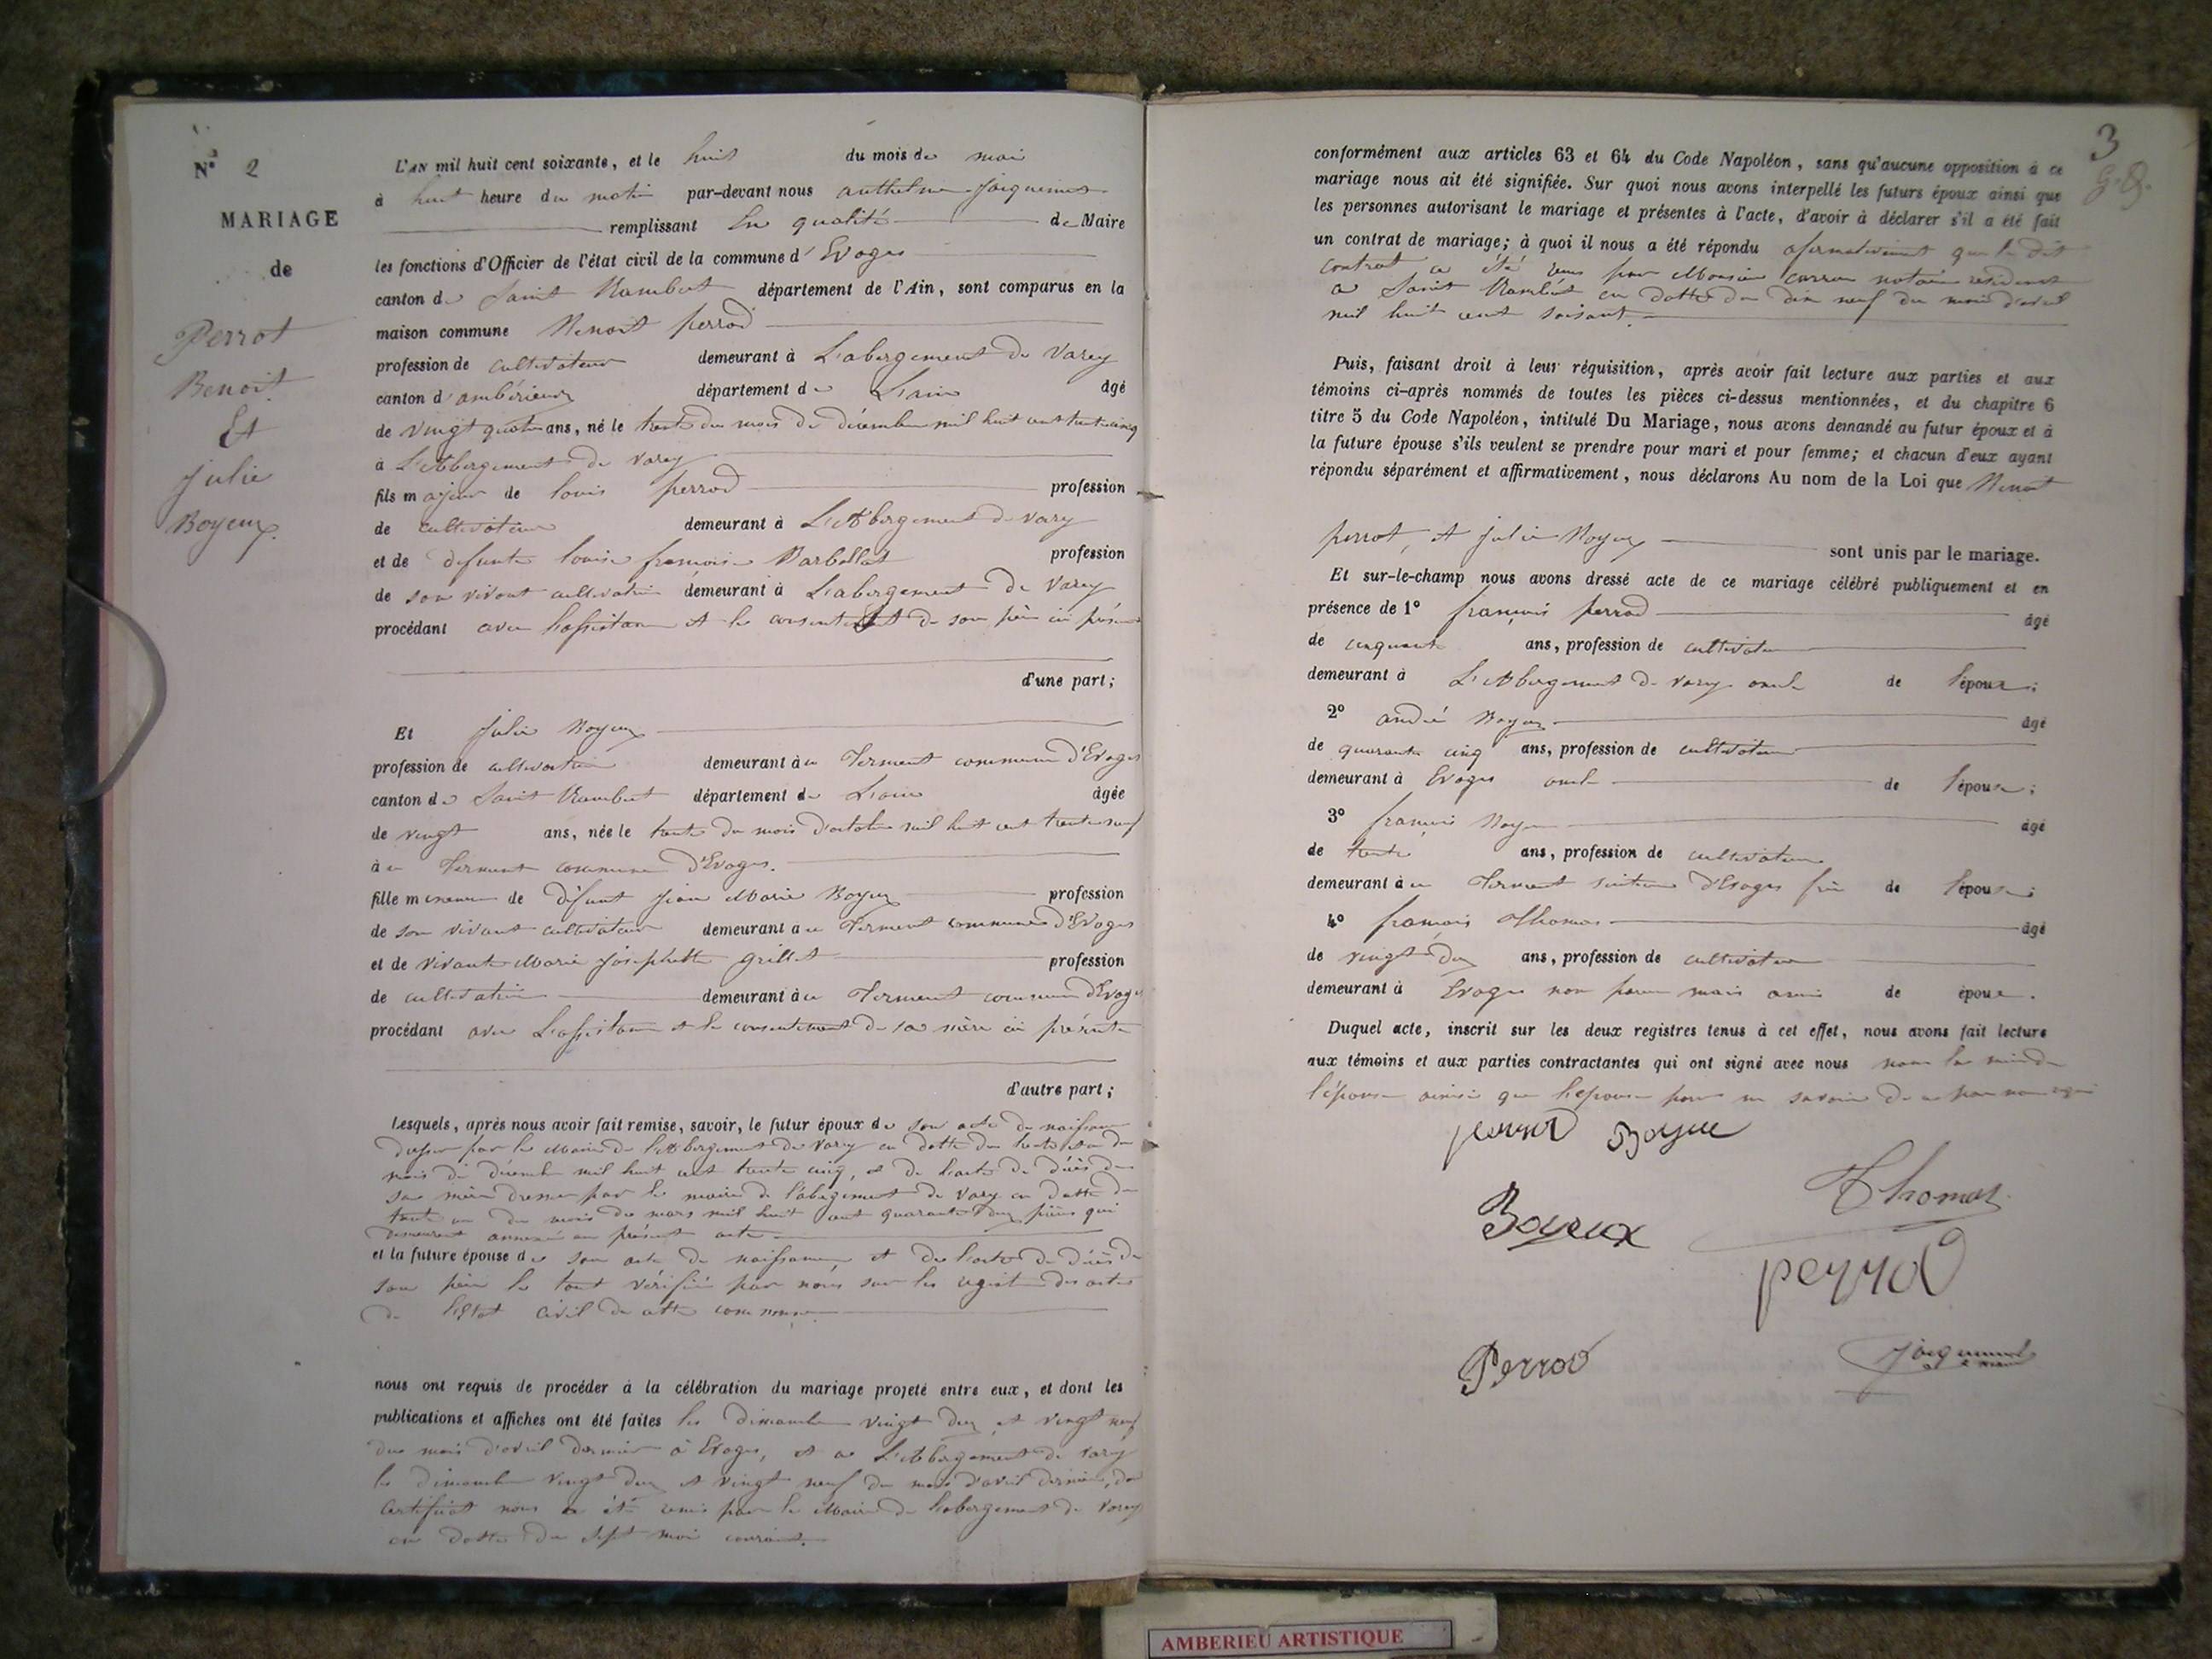 N° 2
MARIAGE
de
Perrot
Benoit
Et
julie
Boyeux
L'AN mil huit cent soixante, et le huit du mois de mai
à huit heure du matin par-devant nous anthelme jacquemet
remplissant En qualité de Maire
les fonctions d'Officier de l'état civil de la commune d'Evoges
canton de Saint Rambert département de l'Ain, sont comparus en la
maison commune Benoit perrod
profession de cultivateur demeurant à L'abergement de Varey
canton d'ambérieux département de L'ain âgé
de vingt quatre ans, né le trente du mois de décembre mil huit cent trente cinq
à L'Abergement de varey
fils majeur de louis perrod profession
de cultivateur demeurant à L'Abergement de vary
et de defunte louise françoise Barbollat profession
de son vivant cultivatrice demeurant à L'abergement de Varey
procédant avec l'assistance et le consentement de son père ici présent
d'une part;
Et julie Boyeux
profession de cultivatrice demeurant à Terment commune D'Evoges
canton de Saint Rambert département de L'ain âgée
de vingt ans, née le trente du mois d'octobre mil huit cent trente neuf
à Terment commune D'Evoges.
fille mineure de Défunt jean Marie Boyeux profession
de son vivant cultivateur demeurant a Terment commune D'Evoges
et de vivante Marie josephette grillet profession
de cultivatrice demeurant à Terment commune D'Evoges
procédant avec L'assistance et le consentement de sa mère ici présente
d'autre part;
Lesquels, après nous avoir fait remise, savoir, le futur époux de son acte de naissance
dresser par le Maire de l'Abergement de Varey en datte du trente du
mois de décembre mil huit cent trente cinq, et de l'acte de décès de
sa mère dresser par le maire de l'abergement de Vary en datte du
trente un du mois de mars mil huit cent quarante deux pièces qui
demeurent annexé au présent acte
et la future épouse de son acte de naissance, et de l'acte de décès de
son père le tout vérifiée par nous sur les registre des actes
de l'Etat civil de cette commune
nous ont requis de procéder à la célébration du mariage projeté entre eux, et dont les
publications et affiches ont été faites les dimanche vingt deux et vingt neuf
du mois d'avril dernier à Evoges, et a L'Abergement de varey
les dimanche vingt deux et vingt neuf du mois d'avril dernier, dont
certificat nous a été remis par le Maire de l'abergement de Varey
en datte du sept mai courant.
3
conformément aux articles 63 et 64 du Code Napoléon, sans qu'aucune opposition à ce
mariage nous ait été signifiée. Sur quoi nous avons interpellé les futurs époux ainsi que
les personnes autorisant le mariage et présentes à l'acte, d'avoir à déclarer s'il a été fait
un contrat de mariage; à quoi il nous a été répondu afirmativement que le dit
contrat a été reçu par Monsieur notaire résidant
a Saint Rambert en datte du dix neuf du mois d'avril
mil huit cent soixante.
Puis, faisant droit à leur réquisition, après avoir fait lecture aux parties et aux
témoins ci-après nommés de toutes les pièces ci-dessus mentionnées, et du chapitre 6
titre 5 du Code Napoléon, intitulé Du Mariage, nous avons demandé au futur époux et à
la future épouse s'ils veulent se prendre pour mari et pour femme; et chacun d'eux ayant
répondu séparément et affirmativement, nous déclarons Au nom de la Loi que Benoit
perrot, et julie Boyeux sont unis par le mariage.
Et sur-le-champ nous avons dressé acte de ce mariage célébré publiquement et en
présence de 1° françois perrod âgé
de cinquante ans, profession de cultivateur
demeurant à L'Abergement de vary oncle de l'époux;
2° andré Boyeux âgé
de quarante cinq ans, profession de cultivateur
demeurant à Evoges oncle de l'épouse;
3° françois Boyeux âgé
de trente ans, profession de cultivateur
demeurant à Terment section D'Evoges frère de l'épouse;
4° françois Thomas âgé
de vingt deux ans, profession de cultivateur
demeurant à Evoges non parent mais amis de époux.
Duquel acte, inscrit sur les deux registres tenus à cet effet, nous avons fait lecture
aux témoins et aux parties contractantes qui ont signé avec nous non la mère de
l'épouse ainsi que l'épouse pour ne savoir de ce par nous
perrod Boyeux
Thomas
Boyeux
perrod
Perrod
jacquemet
AMBERIEU ARTISTIQUE